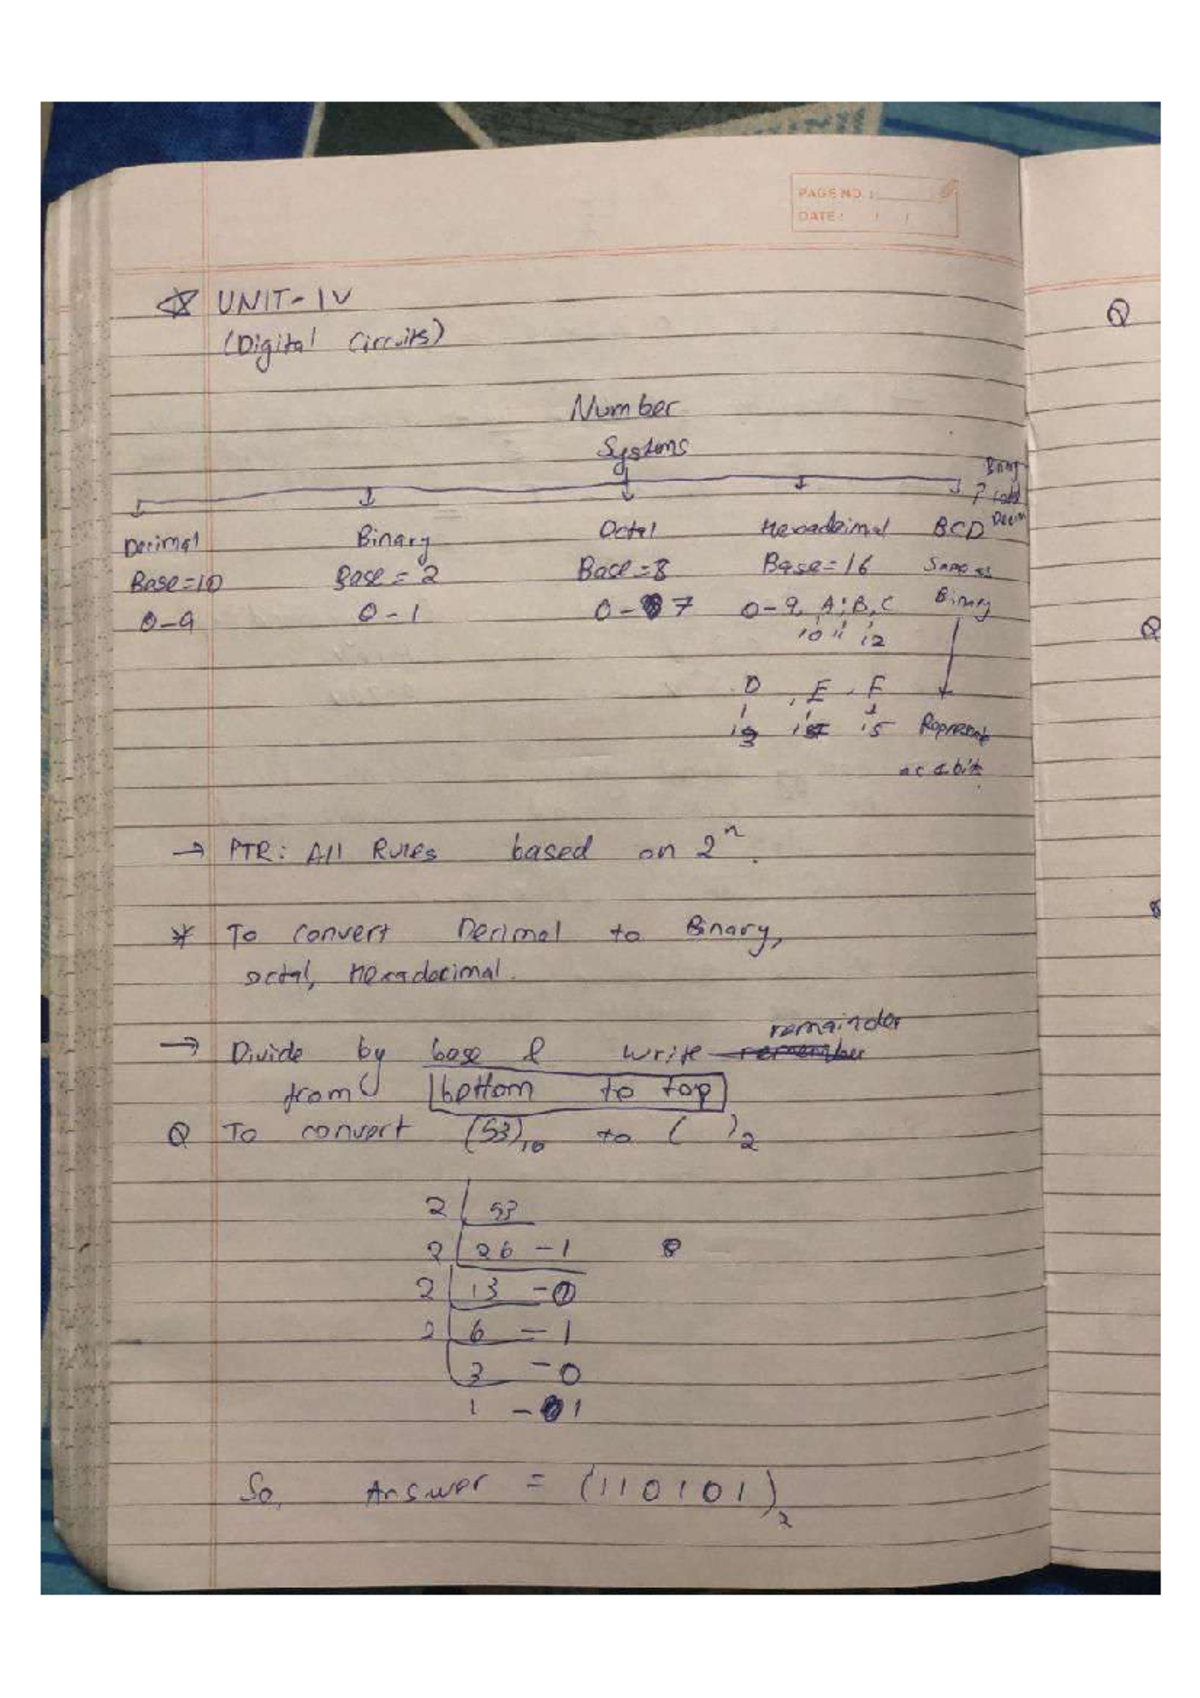 PAGE NO. :
DATE : / /
☆ UNIT-IV
(Digital Circuits)
Number
Systems
Decimal Binary Octal Hexadeimal BCD
Base=10 Base = 2 Base=8 Base=16 Same as
0-9 0-1 0-7 0-9, A, B, C Binary
10 11 12
D, E, F
13 14 15 Represent
as 4 bit
→ PTR: All Rules based on 2ⁿ.
* To convert Decimal to Binary,
octal, Hexadecimal.
remainder
→ Divide by base & write remember
from bottom to top
Q To convert (53)₁₀ to ( )₂
2 53
2 26 - 1
2 13 - 0
2 6 - 1
3 - 0
1 - 1
So, Answer = (110101)₂
Q
Q